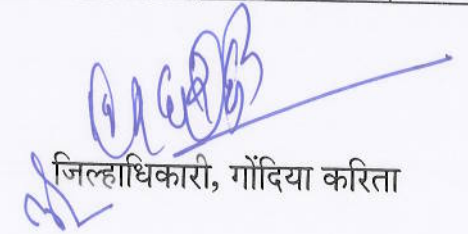 जिल्हाधिकारी, गोंदिया करिता